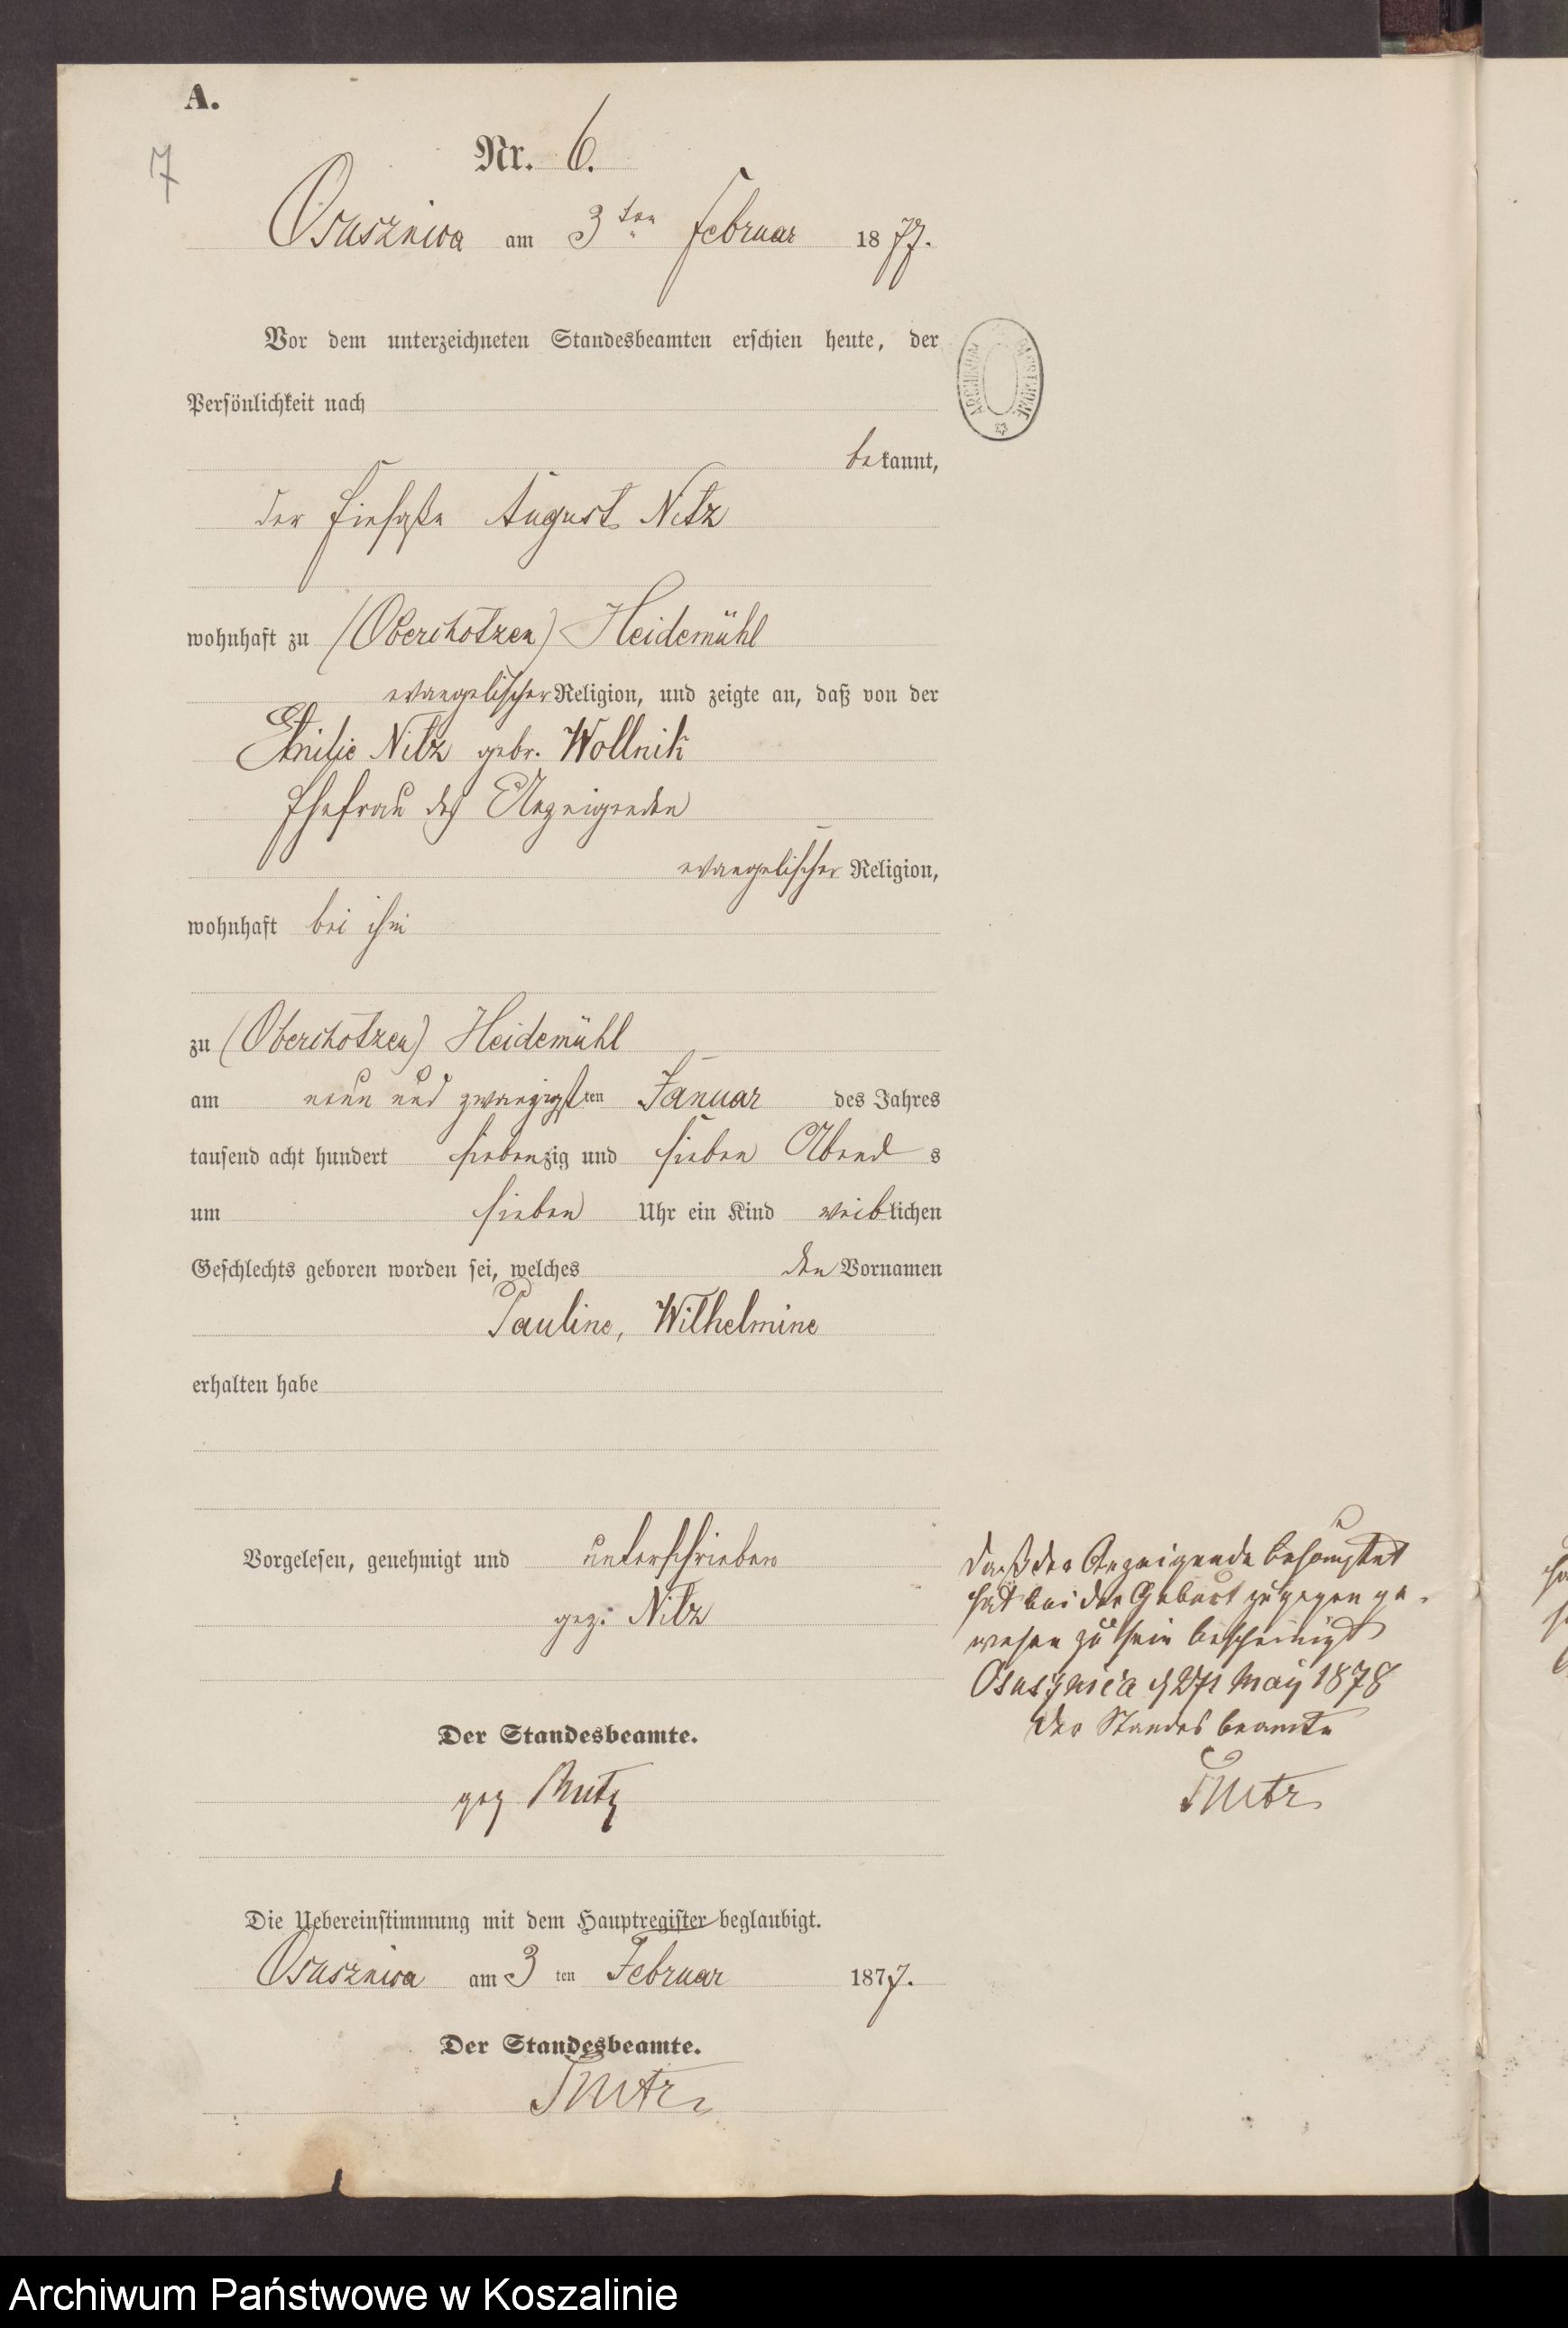 A.
7
Nr. 6.
Osusznica am 3ten Februar 1877.
Vor dem unterzeichneten Standesbeamten erschien heute, der
Persönlichkeit nach
bekannt,
der Einsaße August Nitz
wohnhaft zu (Oberchotzen) Heidemühl
evangelischer Religion, und zeigte an, daß von der
Emilie Nitz gebr. Wollnik
Ehefrau des Anzeigenden
evangelischer Religion,
wohnhaft bei ihm
zu (Oberchotzen) Heidemühl
am neun und zwanzigsten Januar des Jahres
tausend acht hundert siebenzig und sieben Abends
um sieben Uhr ein Kind weiblichen
Geschlechts geboren worden sei, welches den Vornamen
Pauline, Wilhelmine
erhalten habe
Vorgelesen, genehmigt und unterschrieben
gez. Nitz
Der Standesbeamte.
gez
Die Uebereinstimmung mit dem Hauptregister beglaubigt.
Osusznica am 3 ten Februar 1877.
Der Standesbeamte.
Daß der Anzeigende behauptet
hat bei der Geburt zugegen ge-
wesen zu sein bescheinigt
Osusznica May 1878
Der Standesbeamte
ARCHIWUM PAŃSTWOWE
Archiwum Państwowe w Koszalinie